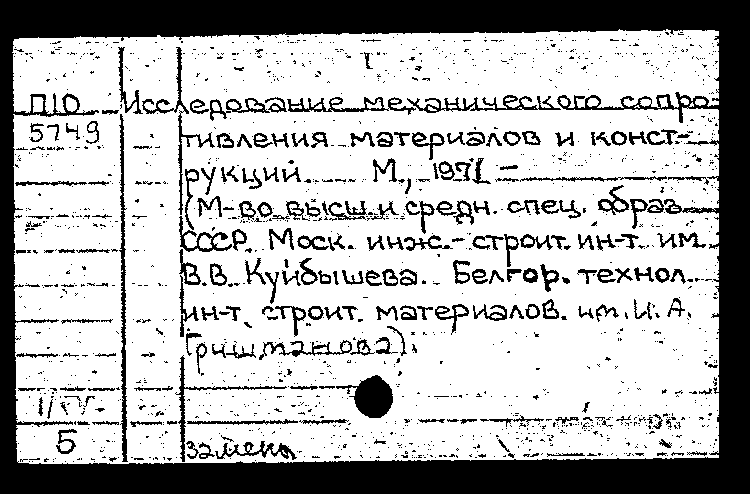 I
П10 Исследование механического сопро-
5749 тивления материалов и конст-
рукций. М., 1971 —
(М-во высш. и средн. спец. образ.
СССР. Моск. инж.-строит. ин-т. им.
В.В. Куйбышева. Белгор. технол.
ин-т. строит. материалов. им. И. А.
Гришманова).
5 замены